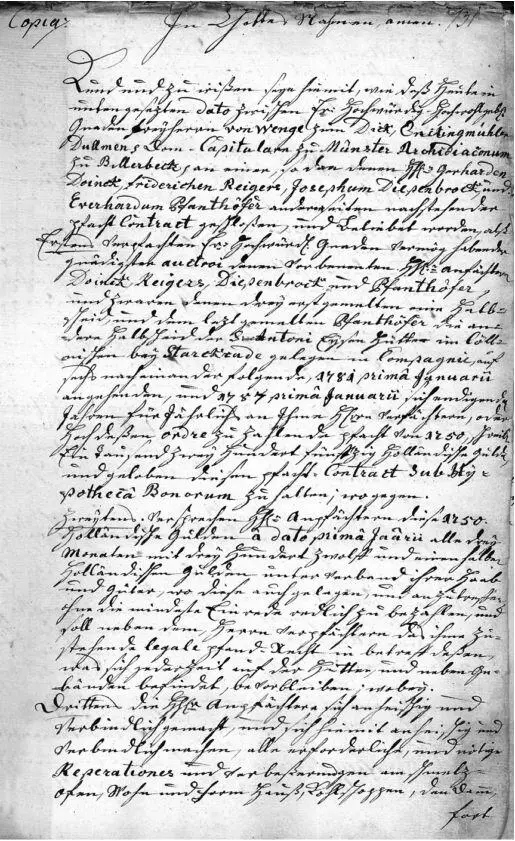 Copia.
In Gottes Nahmen, amen. 131
Kund und zu wißen seye hiemit, wie daß heute
untengesezten dato zwischen Sr Hochwürdig Hochwohlgeb.
Gnaden Freyherrn von Wenge zum Dick, Enikingmühlen
Dullmen, Dom-Capitularn zu Münster Archidiaconum
zu Billerbeck, an einer, so dan denen HHr Gerharden
Doinck, Friderichen Reigers, Josephum Diepenbrock und
Everhardum Pfanthöfer anderseiten nachstehender
pfacht Contract geschloßen, und beliebet worden, als
Erstens verpachten Sr Hochwürd. Gnaden vermög habender
gnädigster auctroi denen vorbenenten HHr anpächtern
Doinck, Reigers, Diepenbrock und Pfanthöfer,
und zwaren denen drey erstgemelten eine Halb-
scheid, und dem leztgemelten Pfanthöfer die an-
dere Halbscheid der St Antoni Eysen Hütten im Cöll-
nischen bey Starckrade gelegen in Compagnie, auf
sechs nacheinander folgende, 1781 primâ Januarii
angehenden, und 1787 primâ Januarii sich endigende
Jahren für jährliche an Ihne Herrn Verpächtern, oder
Hochdeßen ordre zu zahlende pfacht von 1250, schreibe
Ein tausend zwey hundert fünffzig Holländische Gulden
und geloben diesen pfacht-Contract sub Hy-
pothecâ Bonorum zu halten; wogegen.
Zweytens versprechen HHr Anpfächtern diese 1250.
Holländische Gulden â dato primâ Jaârii alle drey
Monaten mit drey hundert zwölff und einen halben
Holländischen Gulden unter verband ihrer Haab
und güter, wo diese auch gelegen, und anzutreffen
ohne die mindeste Einrede redlich zu bezahlen, und
soll neben dem Herrn Verpfächtern das ihme zu-
stehende legale pfand-Recht in betreff deßen,
was sich jederzeit auf der Hütten, und neben Ge-
bäuden befindet, bevorbleiben; wobey.
Drittens die HHr Anpfächtere sich anheischig und
verbindlich gemacht, und sich hiemit anheischig und
verbindlich machen, alle erforderliche, und nötige
Reperationes und verbeßerungen am schmelz-
ofen, Wohn und Form Hauß, Kohlschoppen, den Dam,
fort